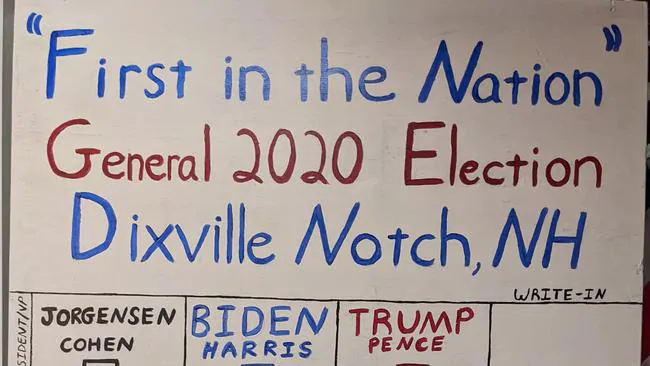 "First in the Nation"
General 2020 Election
Dixville Notch, NH
WRITE-IN
JORGENSEN BIDEN TRUMP
COHEN HARRIS PENCE
SIDENT/VP